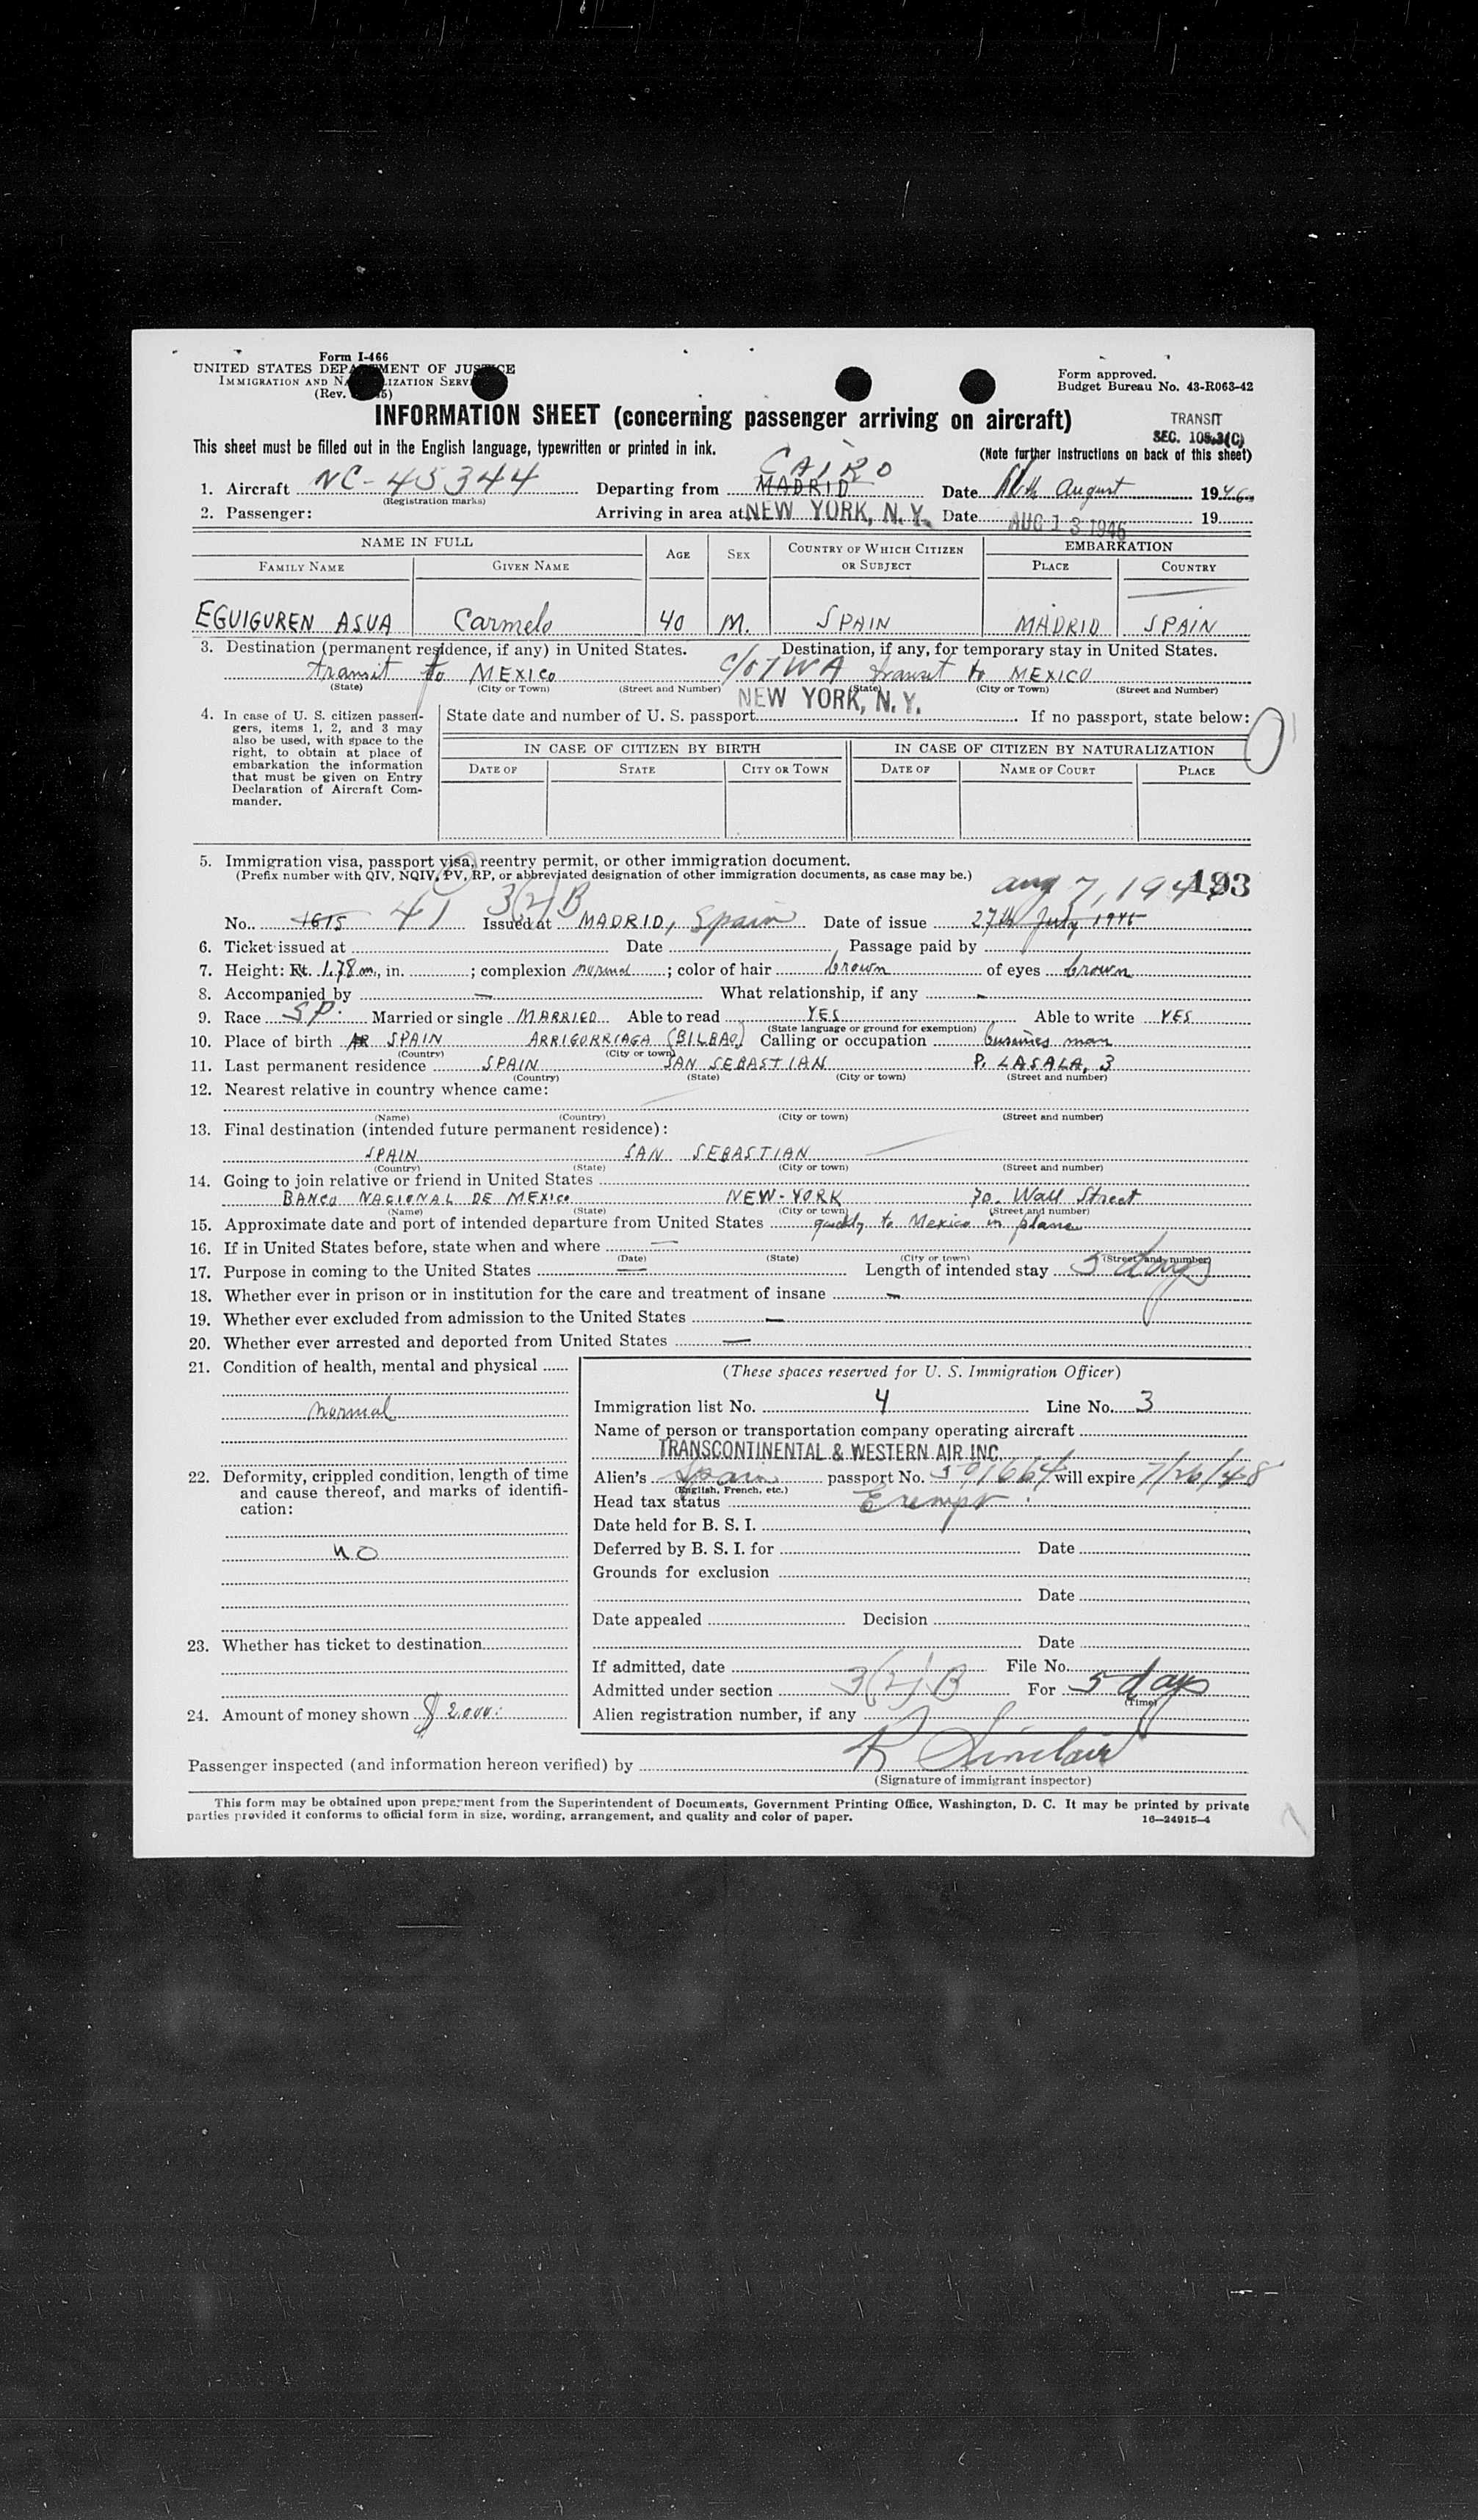 Form I-466
UNITED STATES DEPARTMENT OF JUSTICE
IMMIGRATION AND NATURALIZATION SERVICE
(Rev.
Form approved.
Budget Bureau No. 43-R063-42
INFORMATION SHEET (concerning passenger arriving on aircraft)
TRANSIT
SEC. 105.3(C)
This sheet must be filled out in the English language, typewritten or printed in ink.
(Note further instructions on back of this sheet)
CAIRO
1. Aircraft NC-45344 Departing from MADRID Date August 1946
(Registration marks)
2. Passenger: Arriving in area at NEW YORK, N.Y. Date AUG 13 1946 19
NAME IN FULL AGE SEX COUNTRY OF WHICH CITIZEN OR SUBJECT EMBARKATION
FAMILY NAME GIVEN NAME PLACE COUNTRY
EGUIGUREN ASUA Carmelo 40 M. SPAIN MADRID SPAIN
3. Destination (permanent residence, if any) in United States. Destination, if any, for temporary stay in United States.
transit to MEXICO c/o TWA transit to MEXICO
(State) (City or Town) (Street and Number) (State) (City or Town) (Street and Number)
NEW YORK, N.Y.
4. In case of U. S. citizen passengers, items 1, 2, and 3 may also be used, with space to the right, to obtain at place of embarkation the information that must be given on Entry Declaration of Aircraft Commander.
State date and number of U. S. passport If no passport, state below:
IN CASE OF CITIZEN BY BIRTH IN CASE OF CITIZEN BY NATURALIZATION
DATE OF STATE CITY OR TOWN DATE OF NAME OF COURT PLACE
5. Immigration visa, passport visa, reentry permit, or other immigration document.
(Prefix number with QIV, NQIV, PV, RP, or abbreviated designation of other immigration documents, as case may be.)
3(2)B Aug 7, 194 193
No. 1615 41 Issued at MADRID, Spain Date of issue 27th July 1946
6. Ticket issued at Date Passage paid by
7. Height: Ft. 1.78 m, in. ; complexion normal ; color of hair brown of eyes brown
8. Accompanied by — What relationship, if any -
9. Race SP. Married or single MARRIED Able to read YES Able to write YES
(State language or ground for exemption)
10. Place of birth AR SPAIN ARRIGORRIAGA (BILBAO) Calling or occupation bussines man
(Country) (City or town)
11. Last permanent residence SPAIN SAN SEBASTIAN P. LASALA, 3
(Country) (State) (City or town) (Street and number)
12. Nearest relative in country whence came:
(Name) (Country) (City or town) (Street and number)
13. Final destination (intended future permanent residence):
SPAIN SAN SEBASTIAN
(Country) (State) (City or town) (Street and number)
14. Going to join relative or friend in United States
BANCO NACIONAL DE MEXICO NEW-YORK 70. Wall Street
(Name) (State) (City or town) (Street and number)
15. Approximate date and port of intended departure from United States quickly to Mexico in plane
16. If in United States before, state when and where —
(Date) (State) (City or town) (Street and number)
17. Purpose in coming to the United States — Length of intended stay 5 days
18. Whether ever in prison or in institution for the care and treatment of insane -
19. Whether ever excluded from admission to the United States —
20. Whether ever arrested and deported from United States —
21. Condition of health, mental and physical
normal
22. Deformity, crippled condition, length of time and cause thereof, and marks of identification:
NO
23. Whether has ticket to destination
24. Amount of money shown $ 2.000.
(These spaces reserved for U. S. Immigration Officer)
Immigration list No. 4 Line No. 3
Name of person or transportation company operating aircraft
TRANSCONTINENTAL & WESTERN AIR INC.
Alien's Spain passport No. 501664 will expire 7/26/48
(English, French, etc.)
Head tax status Exempt
Date held for B. S. I.
Deferred by B. S. I. for Date
Grounds for exclusion
Date
Date appealed Decision
Date
If admitted, date File No.
Admitted under section 3(2)B For 5 days
(Time)
Alien registration number, if any
Passenger inspected (and information hereon verified) by R Sinclair
(Signature of immigrant inspector)
This form may be obtained upon prepayment from the Superintendent of Documents, Government Printing Office, Washington, D. C. It may be printed by private
parties provided it conforms to official form in size, wording, arrangement, and quality and color of paper.
16—24915-4